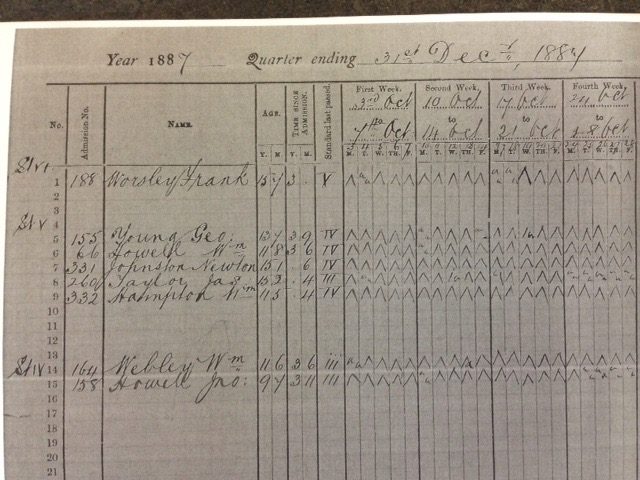 Year 1887 Quarter ending 31st Decr, 1887
No. Admission No. NAME. AGE. TIME SINCE ADMISSION. Standard last passed. First Week. Second Week. Third Week. Fourth Week.
3rd Oct 10 Oct 17 Oct 24 Oct
to to to to
7th Oct 14 Oct 21 Oct 28 Oct
Y. M. Y. M. M. T. W. TH. F. M. T. W. TH. F. M. T. W. TH. F. M. T. W. TH. F.
St VI
1 188 Worsley Frank V
2
3
4
St V
5 155 Young Geo: 3 9 IV
6 66 Howell Wm 11 8 3 6 IV
7 331 Johnson Newton 6 IV
8 Taylor Jas 4 III
9 332 Hampton Wm 11 5 4 IV
10
11
12
13
St IV
14 164 Webley Wm 11 6 3 6 iii
15 158 Howell Jno: 9 7 3 11 III
16
17
18
19
20
21